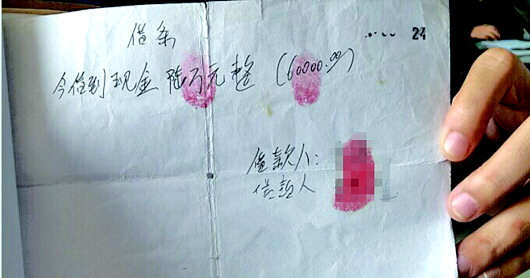 24
借条
今借到现金陆万元整（60000.00）
借款人：
借款人